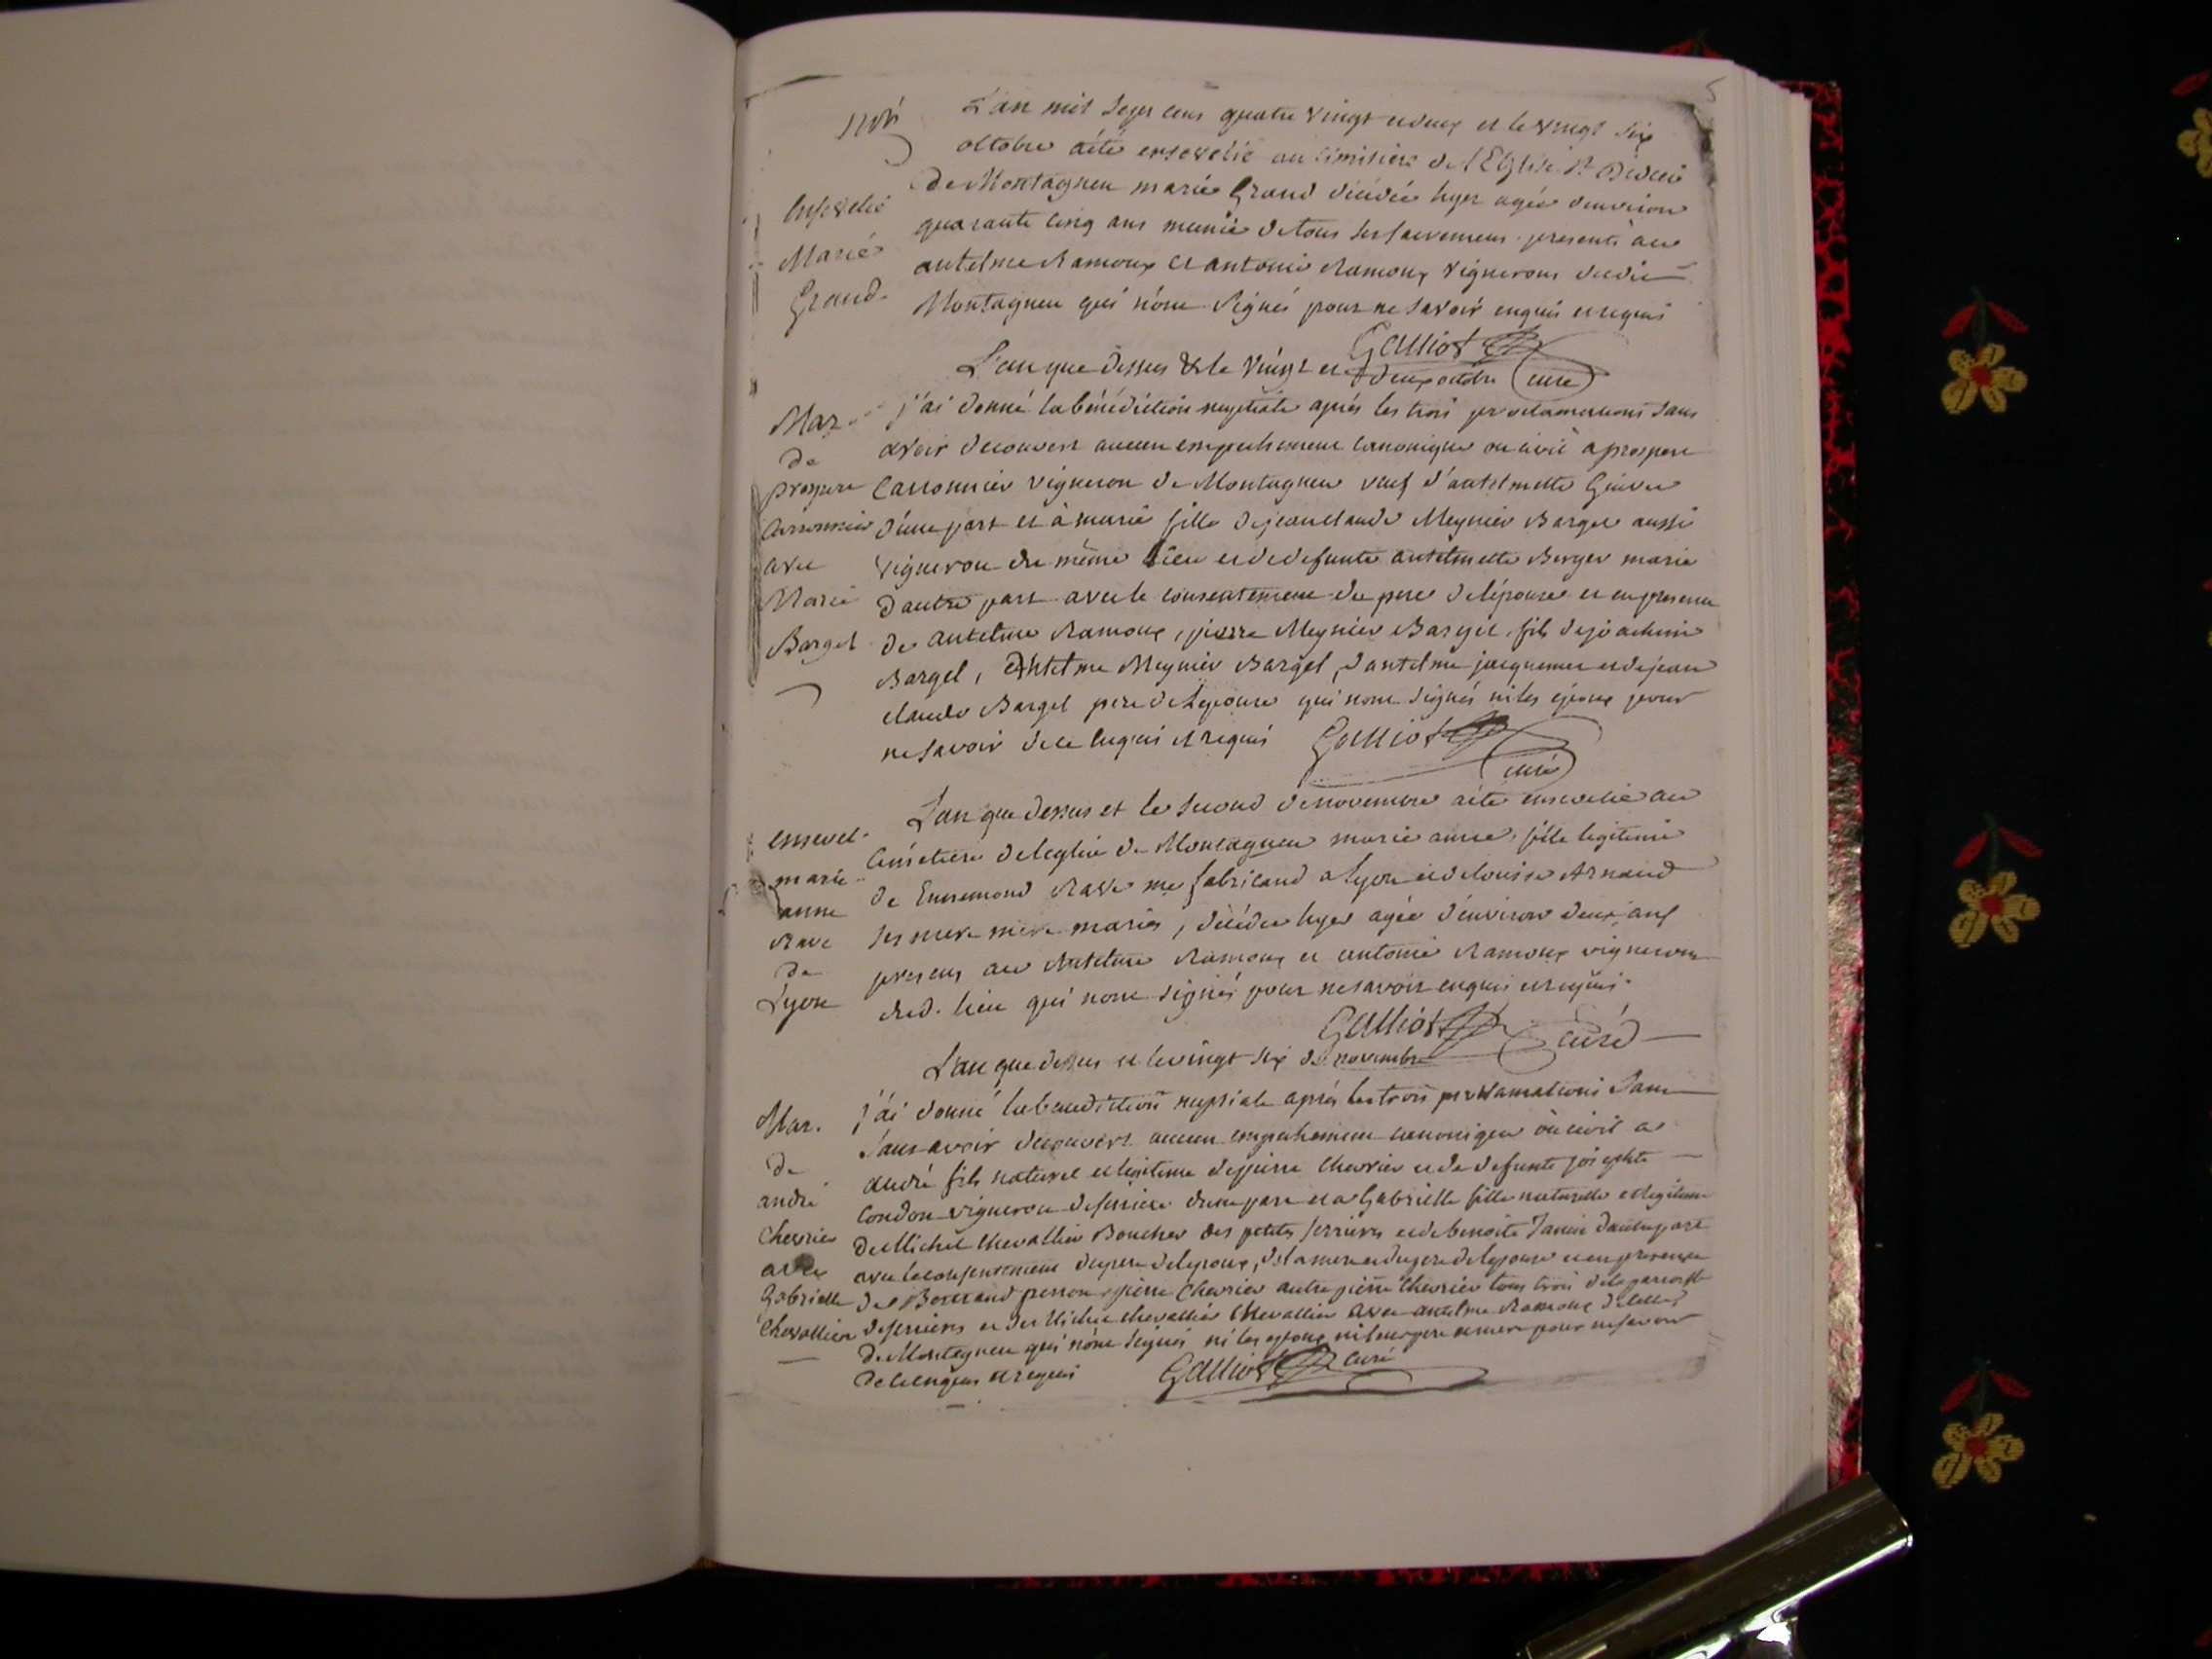 L'an mil sept cens quatre vingt et deux et le vingt six
octobre a été ensevelie au cimitiere de l'Eglise St Didier
Ensevelie
de Montagneu marie Grand décédée hyer agée d'environ
Marie
quarante cinq ans munie de tous ses sacremens presents a ce
Grand
antelme Ramoux et antoine Ramoux vignerons dudit
Montagneu qui n'ont signés pour ne savoir enquis et requis
Galliot curé
L'an que dessus & le vingt et deux octobre
Mar.
j'ai donné la bénédiction nuptiale après les trois proclamations sans
de
avoir decouvert aucun empechement canonique ou civil a prospere
prospere
Carronnier vigneron de Montagneu veuf d'antelmette
Carronnier
d'une part et à marie fille de jean claude Meynier Bargel aussi
avec
vigneron du même lieu et de defunte antelmette Berger marie
Marie
d'autre part avec le consentement du pere de l'épouse et en presence
Bargel
de antelme Ramoux, pierre Meynier Bargel fils de joachim
Bargel, Antelme Meynier Bargel, d'antelme jacquemet et de jean
claude Bargel pere de l'epouse qui n'ont signés ni les epoux pour
ne savoir de ce enquis et requis Galliot curé
L'an que dessus et le second de novembre a été ensevelie au
ensevel.
cimetiere de l'eglise de Montagneu marie anne fille legitime
marie
de Ennemond Rave me fabricand a Lyon et de louise Arnaud
anne
ses mere mere mariés, décédée hyer agée d'environ deux ans
Rave
presens a ce Antelme Ramoux et antoine Ramoux vignerons
de
Lyon
dud. lieu qui n'ont signés pour ne savoir enquis et requis.
Galliot curé
L'an que dessus et le vingt six de novembre
Mar.
j'ai donné la benediction nuptiale après les trois proclamations sans
sans avoir decouvert aucun empechement canonique ou civil a
de
andré fils naturel et legitime de pierre Chevrier et de defunte josephte
andré
Condon vigneron de d'une part et a Gabrielle fille naturelle et legitime
Chevrier
de Michel Chevallier Boucher des petites serrières et de benoite Janin d'autre part
avec
avec le consentement du pere de l'epoux, de la mere et du pere de l'epouse et en presence
Gabrielle
de Bertrand perron, pierre Chevrier autre pierre Chevrier tous trois de la paroisse
Chevallier
de serrieres et de Michel chevallier Chevallier avec antelme Ramoux de celle
de Montagneu qui n'ont signés ni les epoux ni leur pere ni mere pour ne savoir
de ce enquis et requis Galliot curé